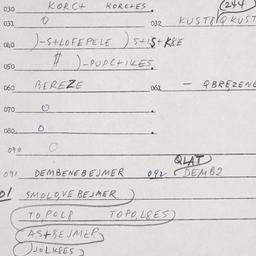 030 KORC+ KORC+ES. (244)
031 0 032 KUST8/QKUST
040 )-S+LOFEPELE )S+IS+K8E
050 # )-PUPC+ILES.
060 BEREZE 061 - QBREZENE
070 0
080 0
090 0
QLAT
091 DEMBENEBEJMER 092 DEMB2
01 SMOLOVEBEJMER
TOPOL8 TOPOL8ES
AS+BEJMER
JUL